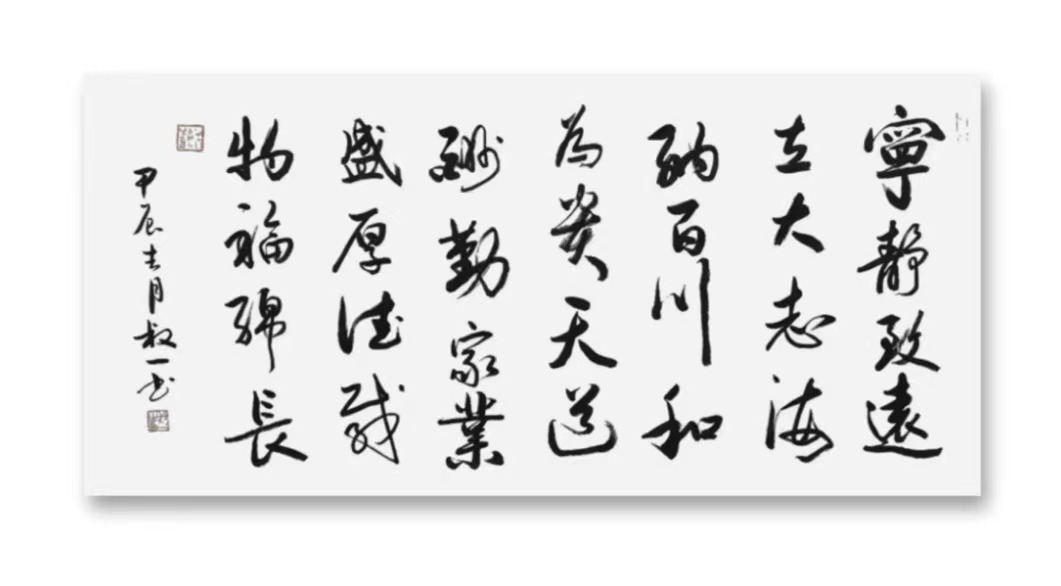 寧靜致遠
立大志海
納百川和
為貴天道
酬勤家業
盛厚德載
物福綿長
甲辰吉月叔一书